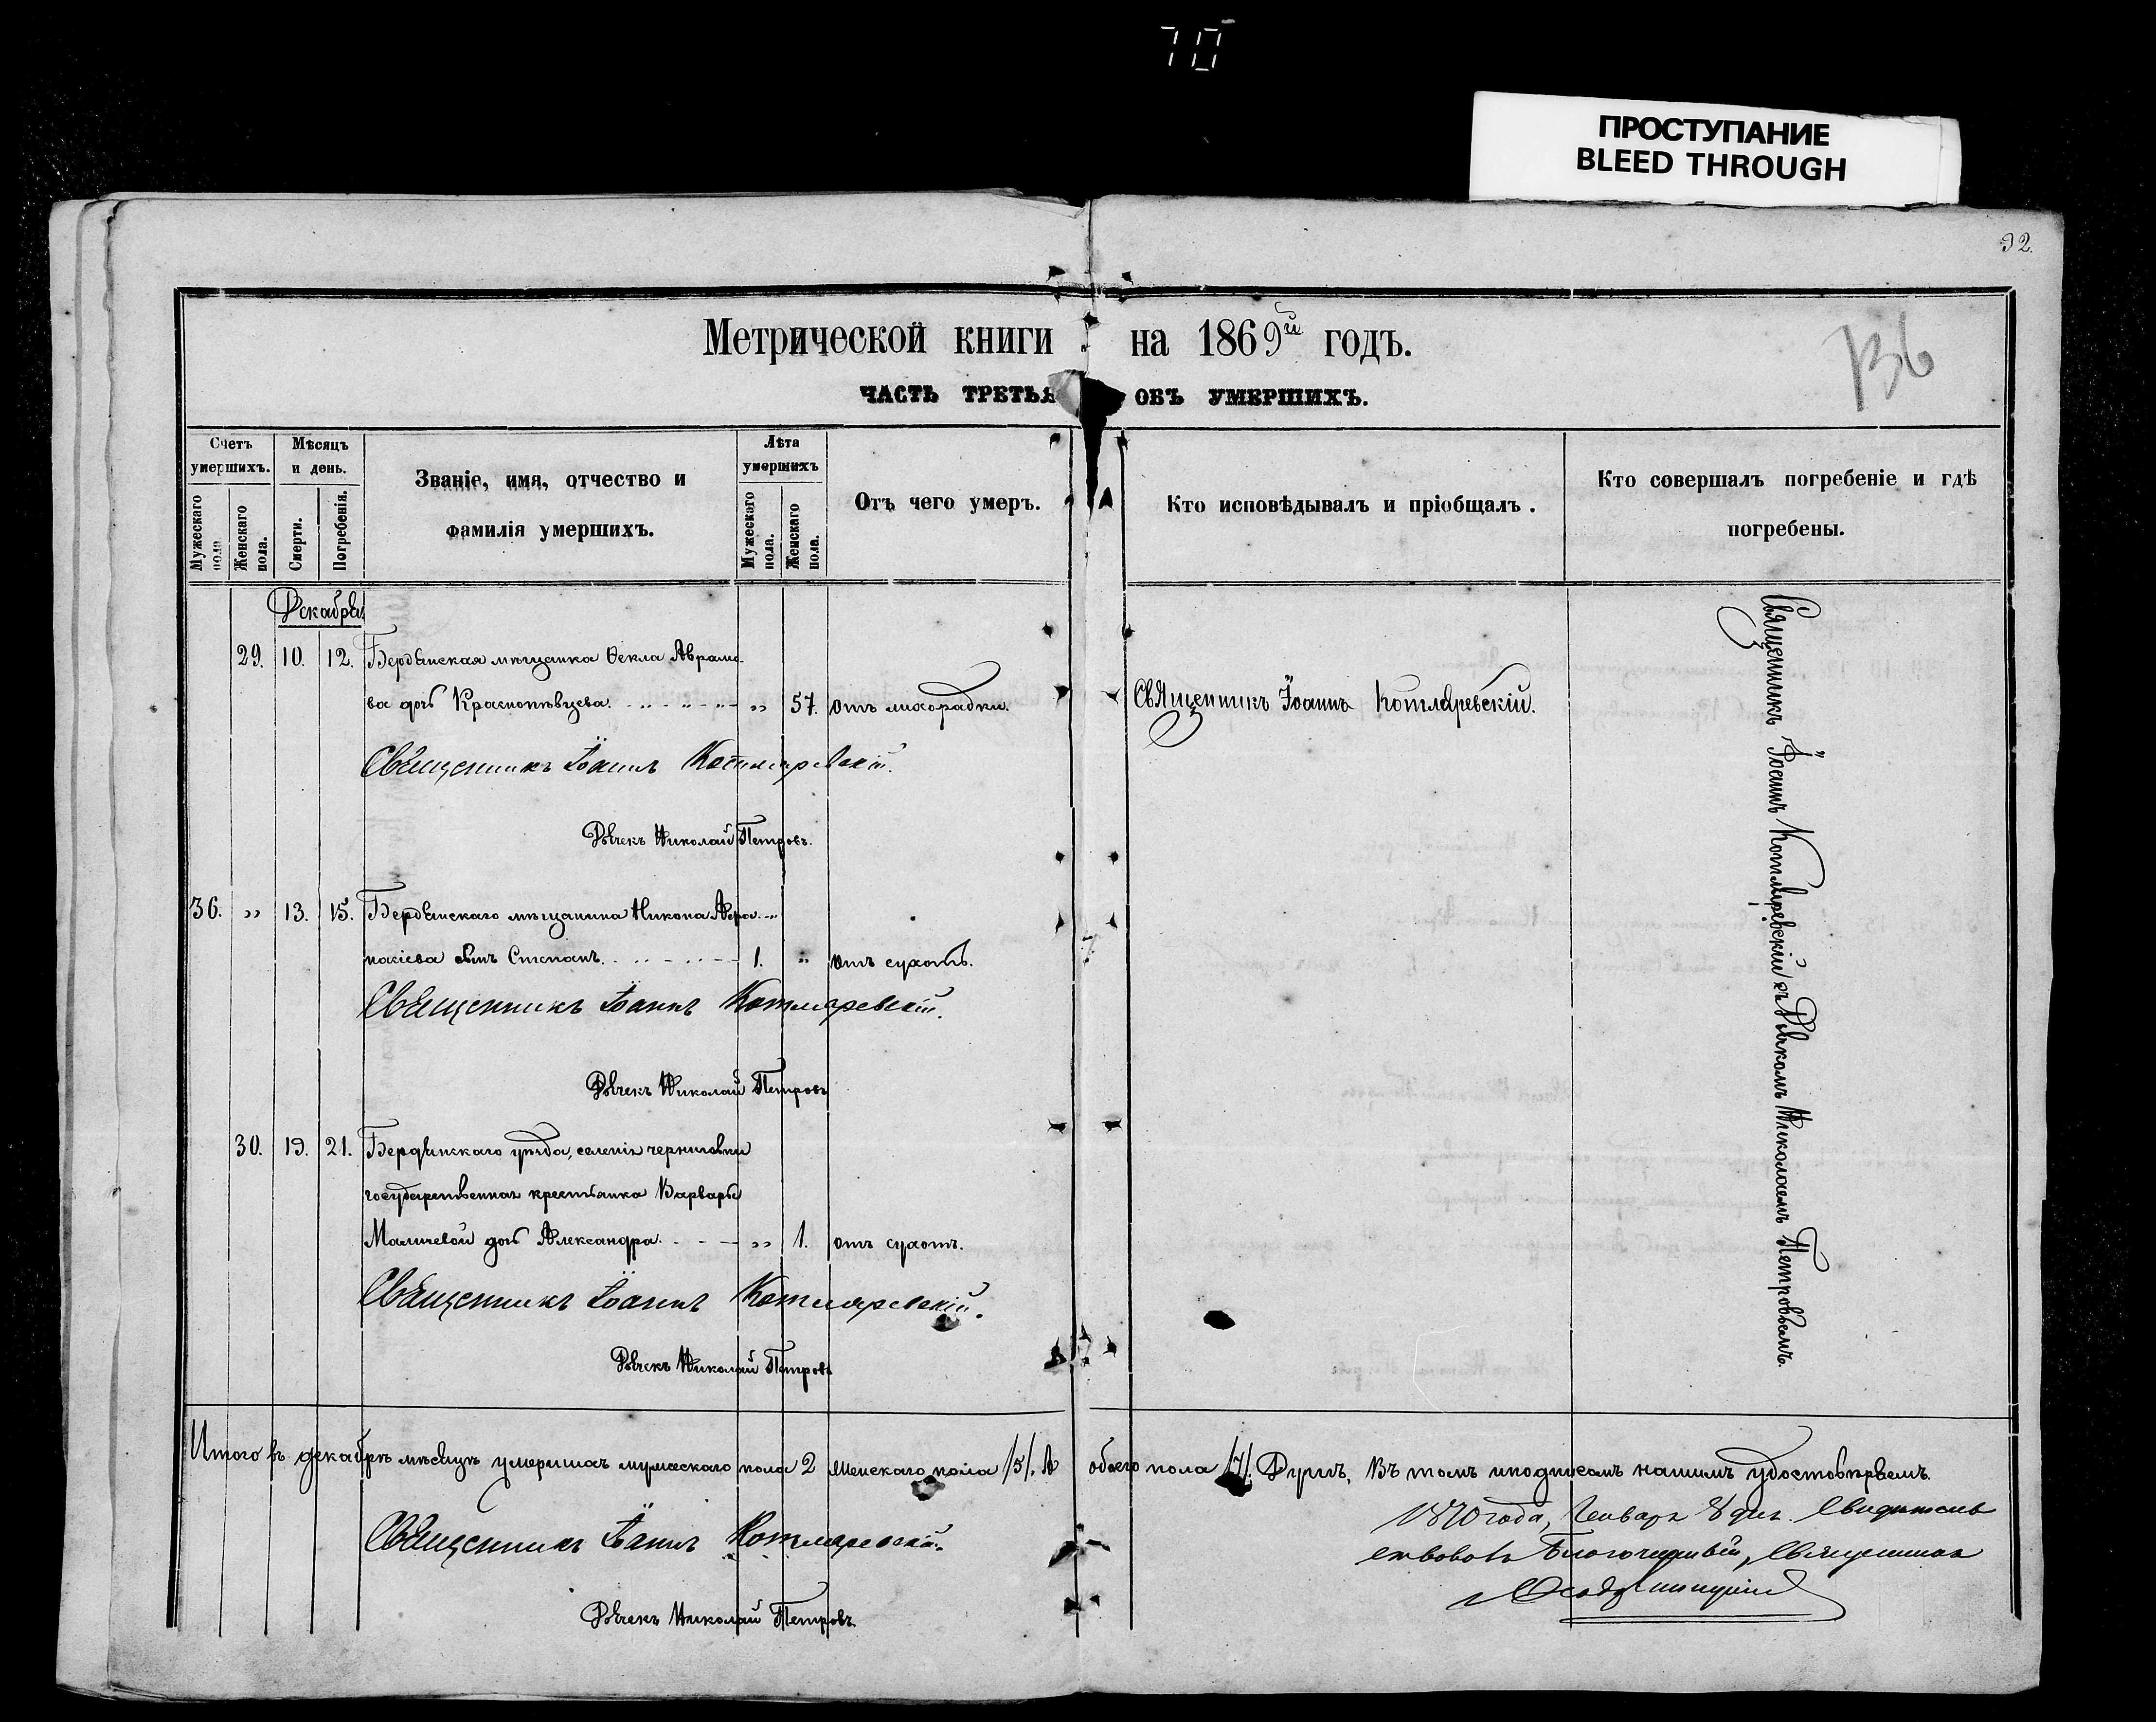 70
ПРОСТУПАНИЕ
BLEED THROUGH
92.
Метрической книги на 1869й годъ.
136
ЧАСТЬ ТРЕТЬЯ ОБЪ УМЕРШИХЪ.
Счетъ умершихъ.
Мужескаго пола
Женскаго пола.
Мѣсяцъ и день.
Смерти.
Погребенія.
Званіе, имя, отчество и
фамилія умершихъ.
Лѣта умершихъ
Мужескаго пола.
Женскаго пола.
Отъ чего умеръ.
Кто исповѣдывалъ и пріобщалъ.
Кто совершалъ погребеніе и гдѣ
погребены.
Декабрь
29. 10. 12. Бердянская мѣщанка Ѳекла Аврамо-
ва дочь Краснопѣвцева. „ 57. отъ лихорадки. Священникъ Іоаннъ Котляревскій.
Священникъ Іоаннъ Котляревскій.
Дьячекъ Николай Петровъ.
36. „ 13. 15. Бердянскаго мѣщанина Никона
сынъ Степанъ. 1. „ отъ сухотъ.
Священникъ Іоаннъ Котляревскій.
Дьячекъ Николай Петровъ
30. 19. 21. Бердянскаго уѣзда, селенія черниговки
государственная крестьянка Варвары
Маличевой дочь Александра. „ 1. отъ сухотъ.
Священникъ Іоаннъ Котляревскій.
Дьячекъ Николай Петровъ
Священникъ Іоаннъ Котляревскій съ Дьячкомъ Николаемъ Петровымъ.
Итого въ декабрѣ мѣсяцѣ умершихъ мужескаго пола 2 женскаго пола /5/. А обоего пола /7/. Душъ, Въ томъ подписомъ нашимъ удостовѣряемъ.
Священникъ Іоаннъ Котляревскій.
Дьячекъ Николай Петровъ.
1870 года, Генваря 8 дня. Свидѣтель
ствовалъ Благочинный, Священникъ